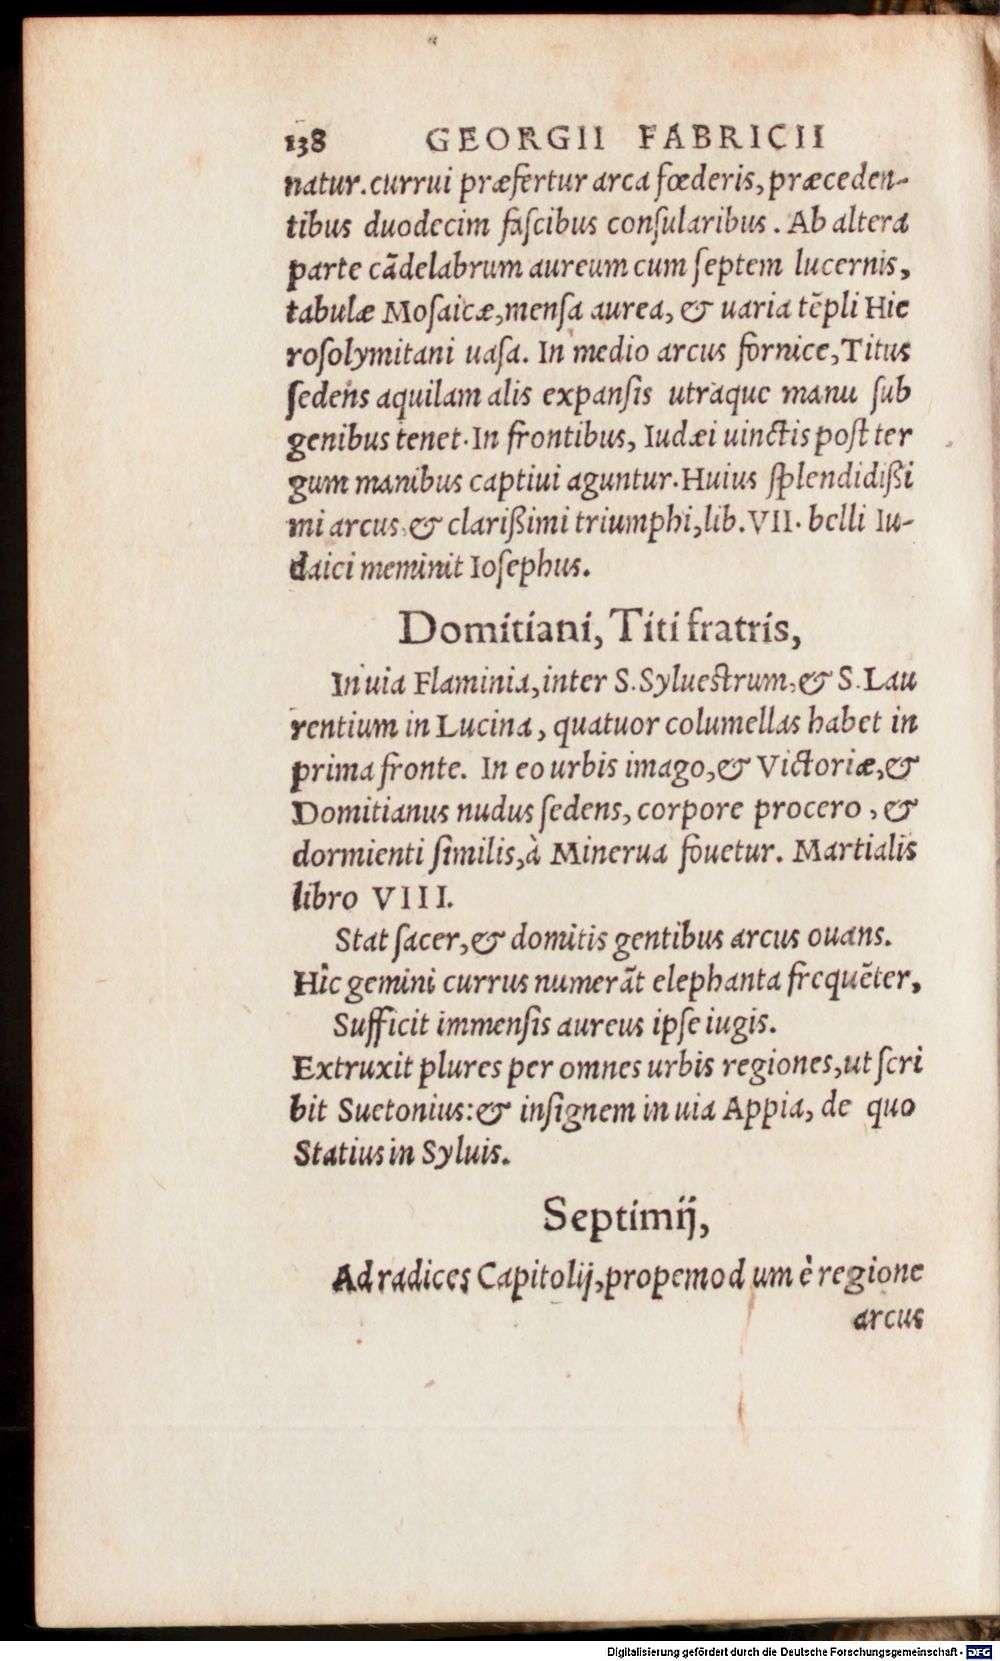 138 GEORGII FABRICII
natur. currui præfertur arca fœderis, præceden-
tibus duodecim faſcibus conſularibus. Ab altera
parte cãdelabrum aureum cum ſeptem lucernis,
tabulæ Moſaicæ, menſa aurea, & uaria tẽpli Hie
roſolymitani uaſa. In medio arcus fornice, Titus
ſedens aquilam alis expanſis utraque manu ſub
genibus tenet. In frontibus, Iudæi uinctis poſt ter
gum manibus captiui aguntur. Huius ſplendidißi
mi arcus, & clarißimi triumphi, lib. VII. belli Iu-
daici meminit Ioſephus.
Domitiani, Titi fratris,
In uia Flaminia, inter S. Sylueſtrum, & S. Lau
rentium in Lucina, quatuor columellas habet in
prima fronte. In eo urbis imago, & Victoriæ, &
Domitianus nudus ſedens, corpore procero, &
dormienti ſimilis, à Minerua fouetur. Martialis
libro VIII.
Stat ſacer, & domitis gentibus arcus ouans.
Hîc gemini currus numerãt elephanta frequẽter,
Sufficit immenſis aureus ipſe iugis.
Extruxit plures per omnes urbis regiones, ut ſcri
bit Suetonius: & inſignem in uia Appia, de quo
Statius in Syluis.
Septimij,
Ad radices Capitolij, propemod um è regione
arcus
Digitalisierung gefördert durch die Deutsche Forschungsgemeinschaft - DFG